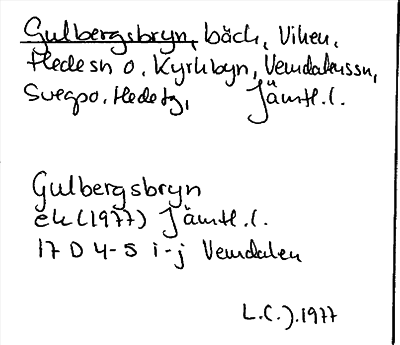 Gulbergsbryn, bäck, Viken,
Hedesn o. Kyrkbyn, Vemdalenssn,
Svegpo. Hede tg, Jämtl.l.
Gulbergsbryn
ek (1977) Jämtl.l.
17 D 4-5 i-j Vemdalen
L.C.J.1977